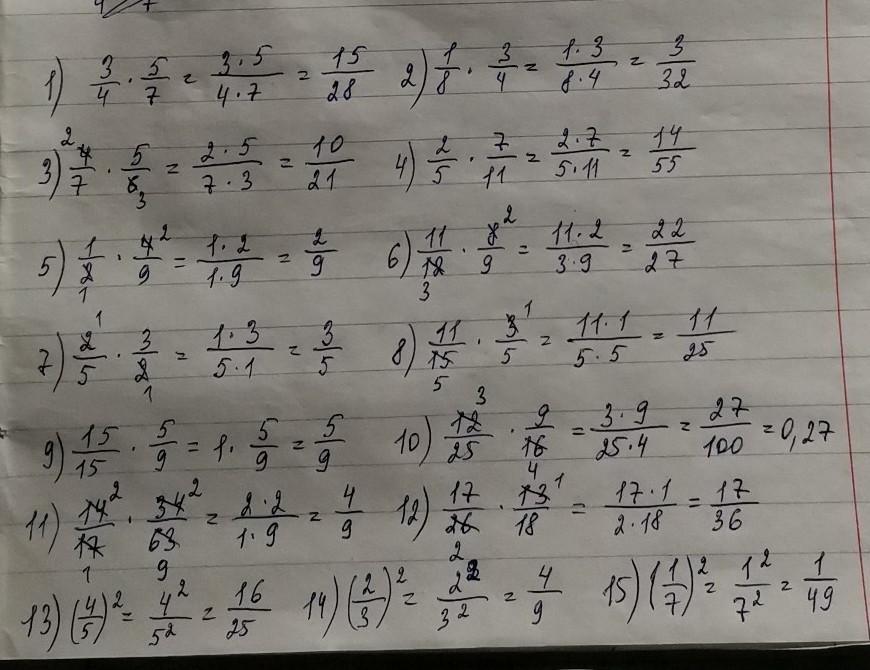 1) 3/4 · 5/7 = 3·5/4·7 = 15/28 2) 1/8 · 3/4 = 1·3/8·4 = 3/32
3) 4/7 · 5/6 = 2·5/7·3 = 10/21 4) 2/5 · 7/11 = 2·7/5·11 = 14/55
5) 1/2 · 4/9 = 1·2/1·9 = 2/9 6) 11/12 · 8/9 = 11·2/3·9 = 22/27
7) 2/5 · 3/2 = 1·3/5·1 = 3/5 8) 11/15 · 3/5 = 11·1/5·5 = 11/25
9) 15/15 · 5/9 = 1 · 5/9 = 5/9 10) 12/25 · 9/16 = 3·9/25·4 = 27/100 = 0,27
11) 14/17 · 34/63 = 2·2/1·9 = 4/9 12) 17/26 · 13/18 = 17·1/2·18 = 17/36
13) (4/5)² = 4²/5² = 16/25 14) (2/3)² = 2²/3² = 4/9 15) (1/7)² = 1²/7² = 1/49